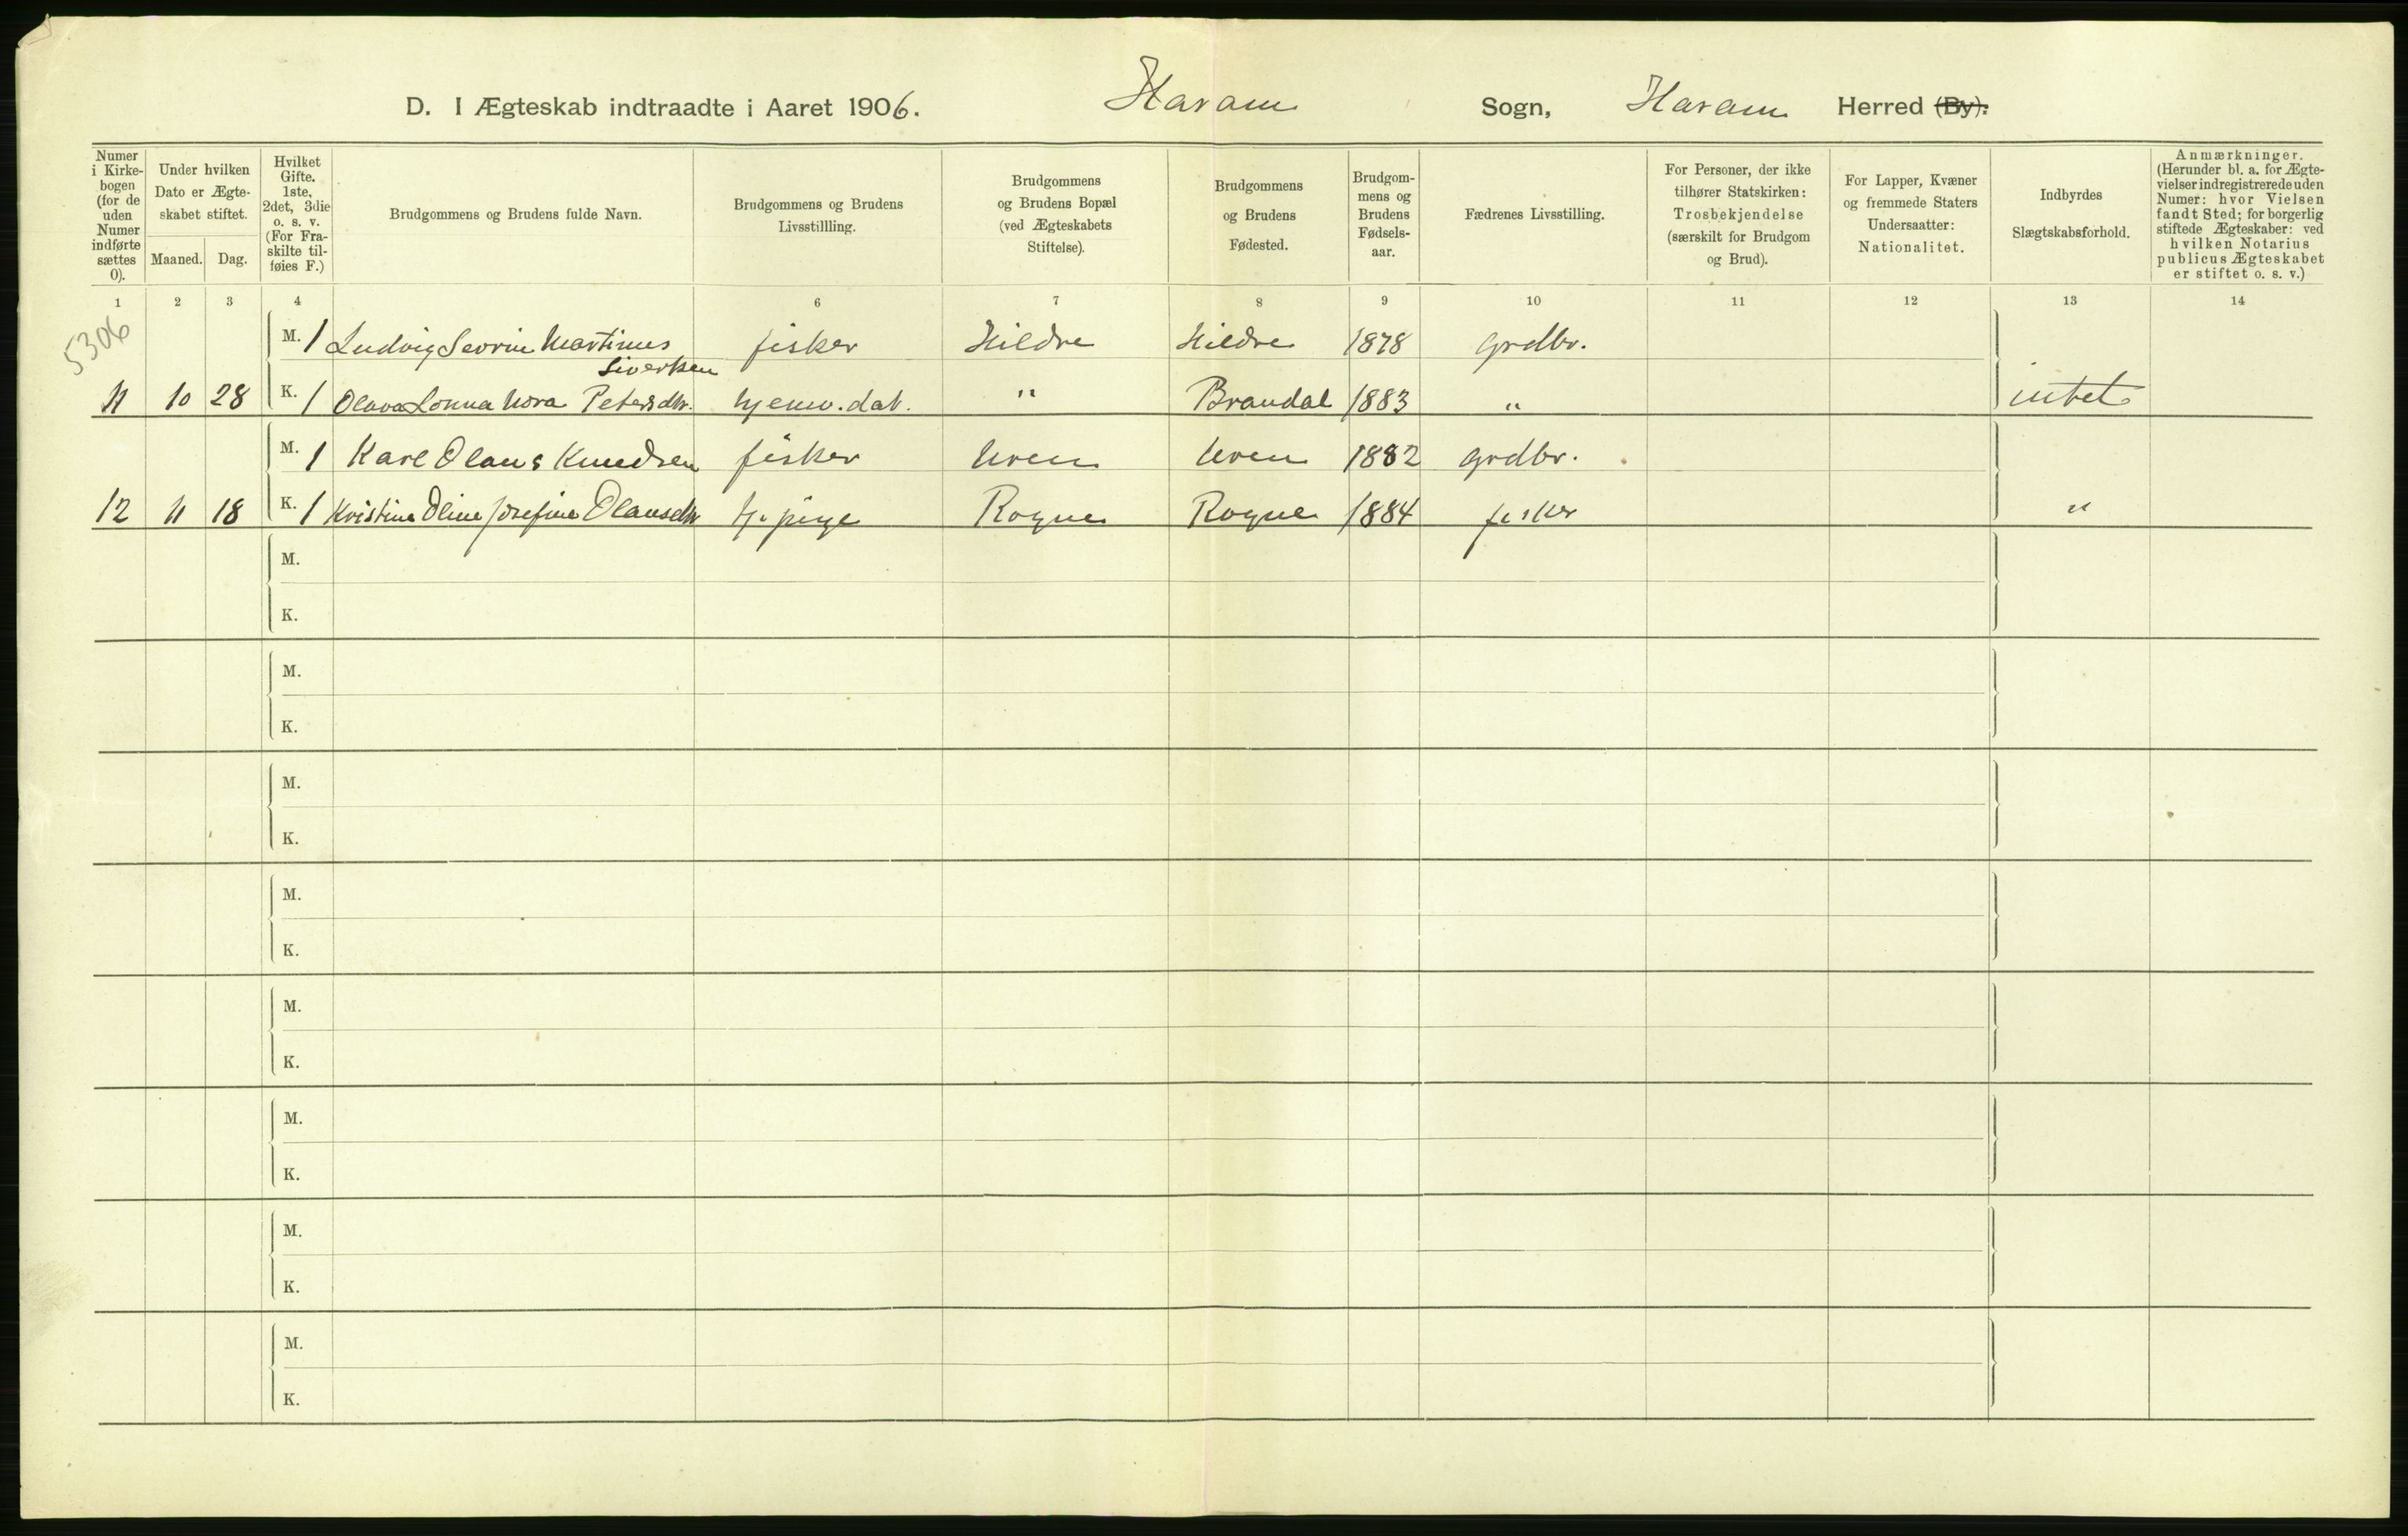 D. I Ægteskab indtraadte i Aaret 1906. Haram Sogn, Haram Herred (By).
Numer i Kirke-bogen (for de uden Numer indførte sættes 0).
Under hvilken Dato er Ægte-skabet stiftet.
Maaned. Dag.
Hvilket Gifte. 1ste, 2det, 3die o. s. v. (For Fra-skilte til-føies F.)
Brudgommens og Brudens fulde Navn.
Brudgommens og Brudens Livsstillling.
Brudgommens og Brudens Bopæl (ved Ægteskabets Stiftelse).
Brudgommens og Brudens Fødested.
Brudgom-mens og Brudens Fødsels-aar.
Fædrenes Livsstilling.
For Personer, der ikke tilhører Statskirken: Trosbekjendelse (særskilt for Brudgom og Brud).
For Lapper, Kvæner og fremmede Staters Undersaatter: Nationalitet.
Indbyrdes Slægtskabsforhold.
Anmærkninger. (Herunder bl. a. for Ægte-vielser indregistrerede uden Numer: hvor Vielsen fandt Sted; for borgerlig stiftede Ægteskaber: ved hvilken Notarius publicus Ægteskabet er stiftet o. s. v.)
1 2 3 4 6 7 8 9 10 11 12 13 14
5306
M. 1 Ludvig Sevrin Martinus fisker Hildre Hildre 1878 grdbr.
Sivertsen
11 10 28 K. 1 Olava Lonna Nora Petersdtr. hjemv. dat. " Brandal 1883 " intet
M. 1 Karl Olaus Knudsen fisker Uren Uren 1882 grdbr.
12 11 18 K. 1 Kristine Oline Josefine Olausdtr tj. pige Rogne Rogne 1884 fisker "
M.
K.
M.
K.
M.
K.
M.
K.
M.
K.
M.
K.
M.
K.
M.
K.